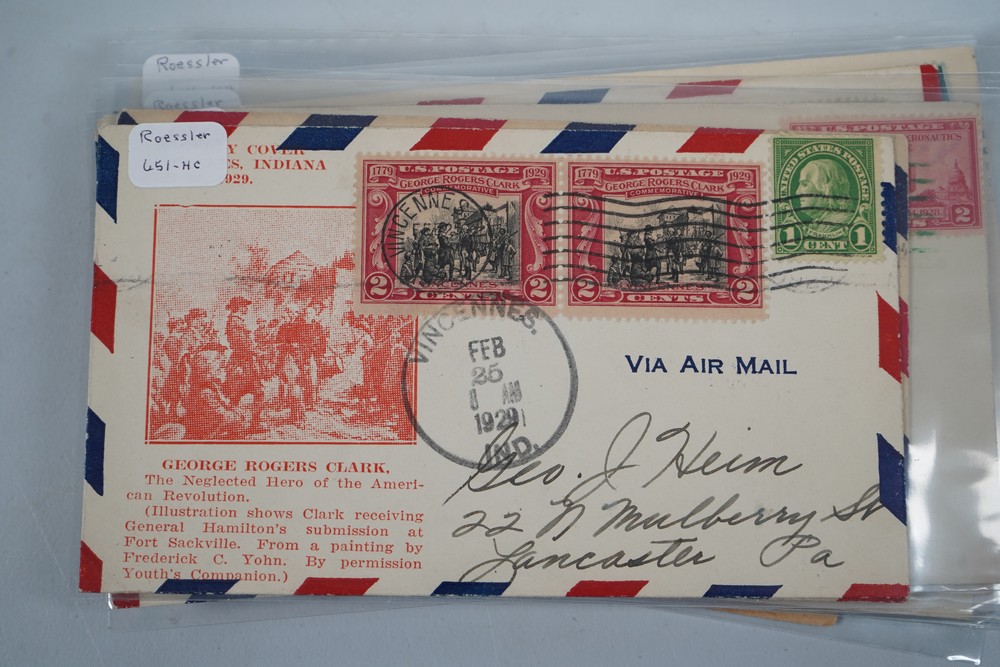 Roessler
Roessler
Roessler
651-HC
Y COVER
ES, INDIANA
929.
1779 U.S. POSTAGE 1929
GEORGE ROGERS CLARK
COMMEMORATIVE
2 CENTS 2
1779 U.S. POSTAGE 1929
GEORGE ROGERS CLARK
COMMEMORATIVE
2 CENTS 2
UNITED STATES POSTAGE
1 CENT 1
U.S. POSTAGE
AERONAUTICS
2
VINCENNES
VINCENNES.
FEB
25
8 AM
1929
IND.
VIA AIR MAIL
Geo. J Heim
22 N Mulberry St
Lancaster Pa
GEORGE ROGERS CLARK,
The Neglected Hero of the Ameri-
can Revolution.
(Illustration shows Clark receiving
General Hamilton's submission at
Fort Sackville. From a painting by
Frederick C. Yohn. By permission
Youth's Companion.)